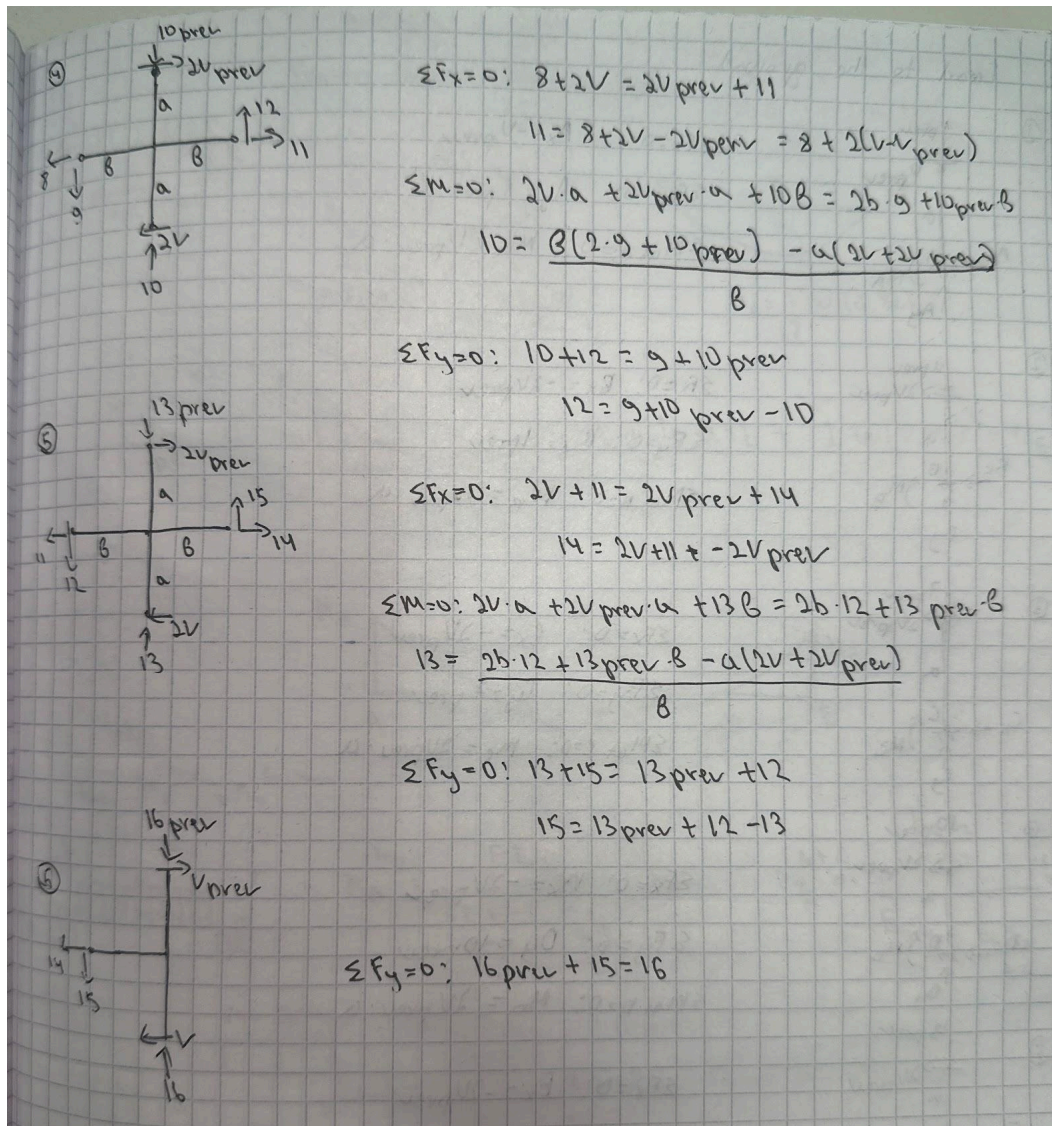 ④
10 prev
2V prev
a
12
11
B
B
8
9
a
2V
10
ΣFx=0: 8+2V = 2V prev + 11
11 = 8+2V - 2V perv = 8 + 2(V-V prev)
ΣM=0: 2V·a + 2V prev·a + 10B = 2b·9 + 10 prev·B
10 = B(2·9 + 10 prev) - a(2V+2V prev)
B
ΣFy=0: 10+12 = 9+10 prev
12 = 9+10 prev - 10
⑤
13 prev
2V prev
a
15
14
B
B
11
12
a
2V
13
ΣFx=0: 2V + 11 = 2V prev + 14
14 = 2V+11 + -2V prev
ΣM=0: 2V·a + 2V prev·a + 13B = 2b·12 + 13 prev·B
13 = 2b·12 + 13 prev·B - a(2V + 2V prev)
B
ΣFy=0: 13+15 = 13 prev + 12
15 = 13 prev + 12 - 13
⑤
16 prev
V prev
14
15
V
16
ΣFy=0: 16 prev + 15 = 16